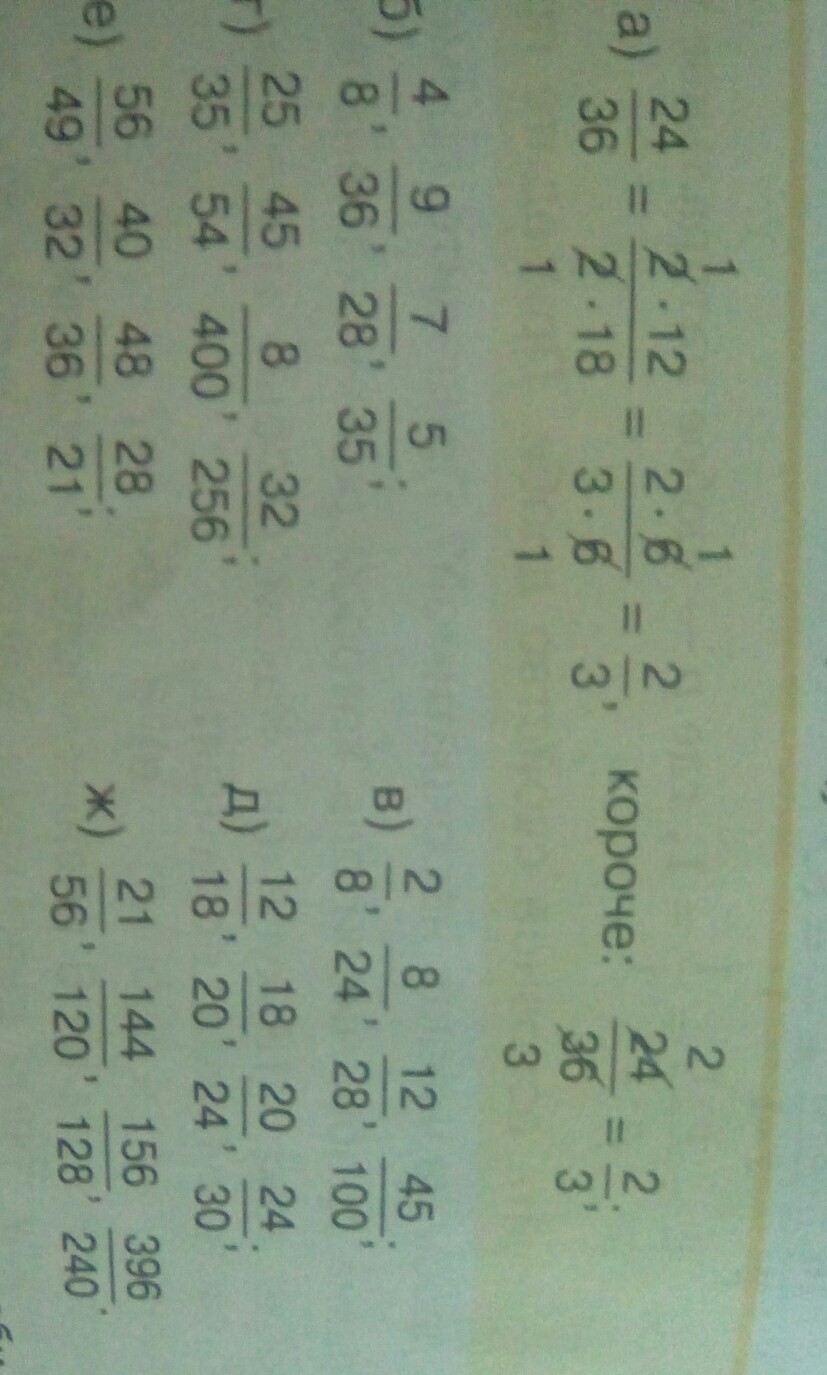 а) 24/36 = 2·12/2·18 = 2·6/3·6 = 2/3, короче: 24/36 = 2/3;
б) 4/8, 9/36, 7/28, 5/35; в) 2/8, 8/24, 12/28, 45/100;
г) 25/35, 45/54, 8/400, 32/256; д) 12/18, 18/20, 20/24, 24/30;
е) 56/49, 40/32, 48/36, 28/21; ж) 21/56, 144/120, 156/128, 396/240.